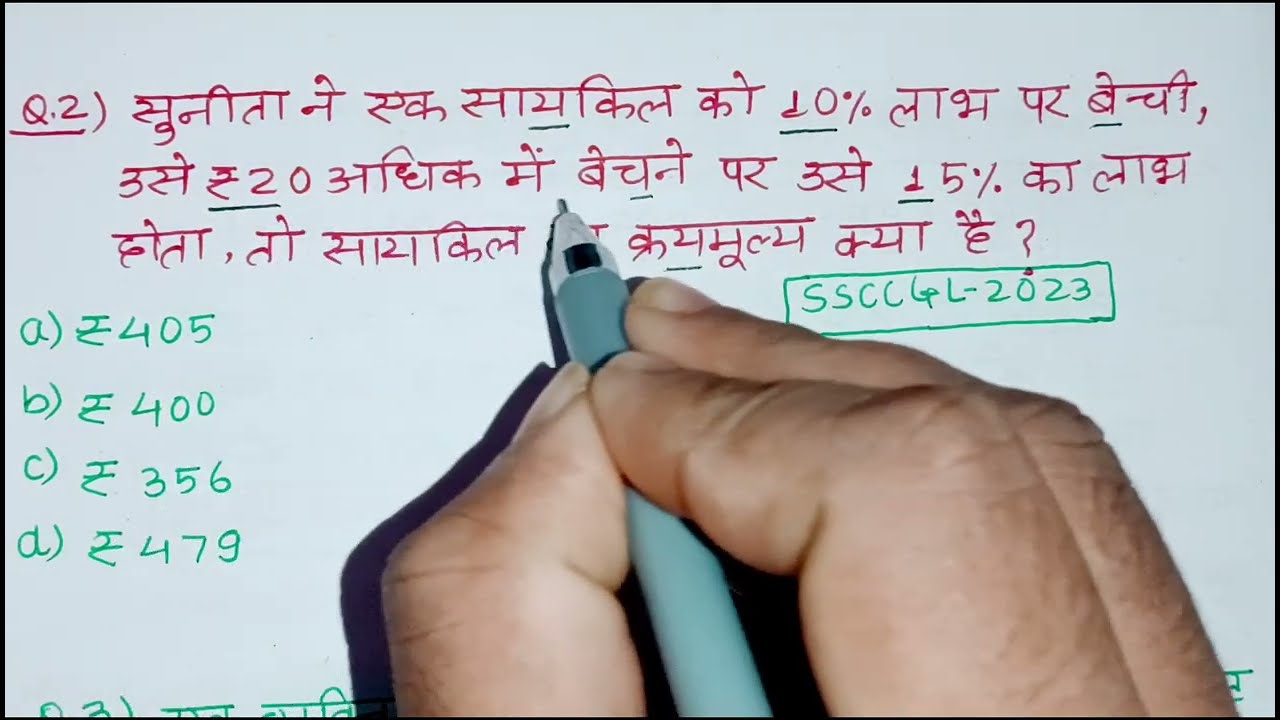 Q.2) सुनीता ने एक सायकिल को 10% लाभ पर बेची,
उसे ₹20 अधिक में बेचने पर उसे 15% का लाभ
होता, तो सायकिल क्रयमूल्य क्या है ?
SSC CGL-2023
a) ₹405
b) ₹ 400
c) ₹ 356
d) ₹ 479
Q.3) एक